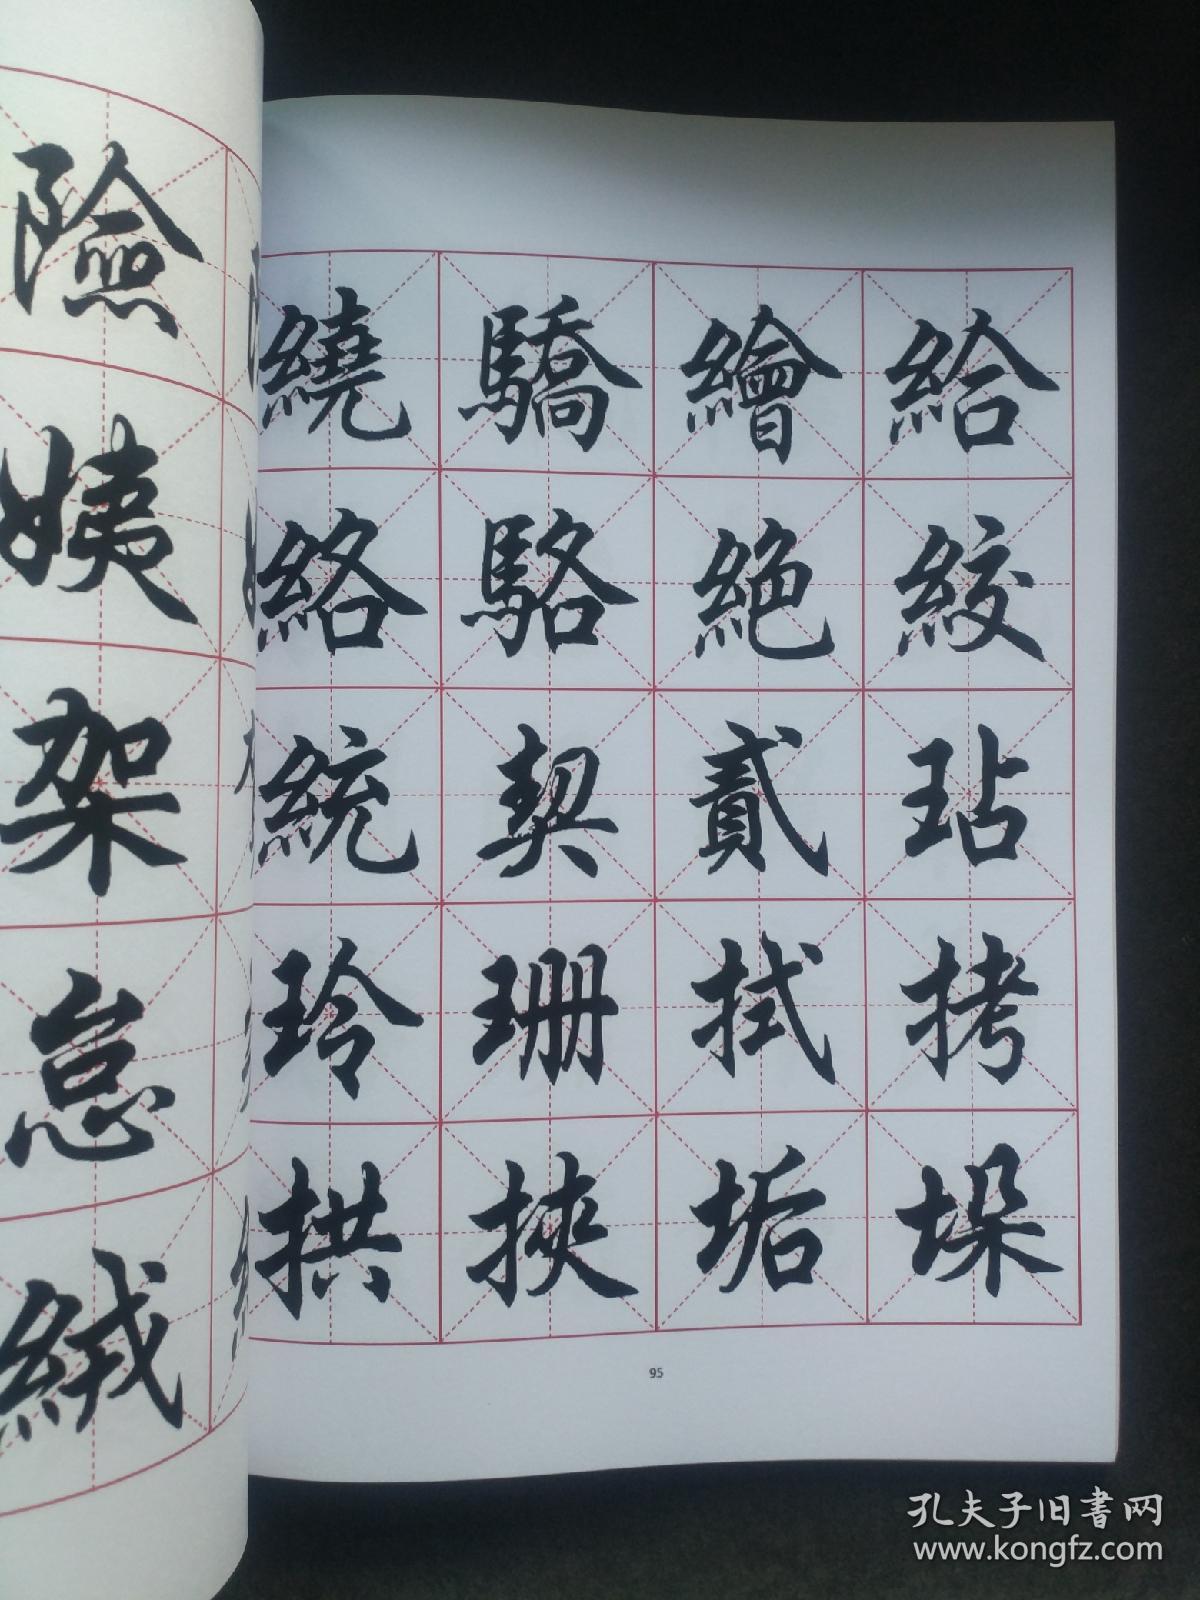 險
姨
架
怠
絨
繞驕繪給
絡駱絕絞
統契貳玷
玲珊拭拷
拱挾垢垛
95
孔夫子旧書网
www.kongfz.com